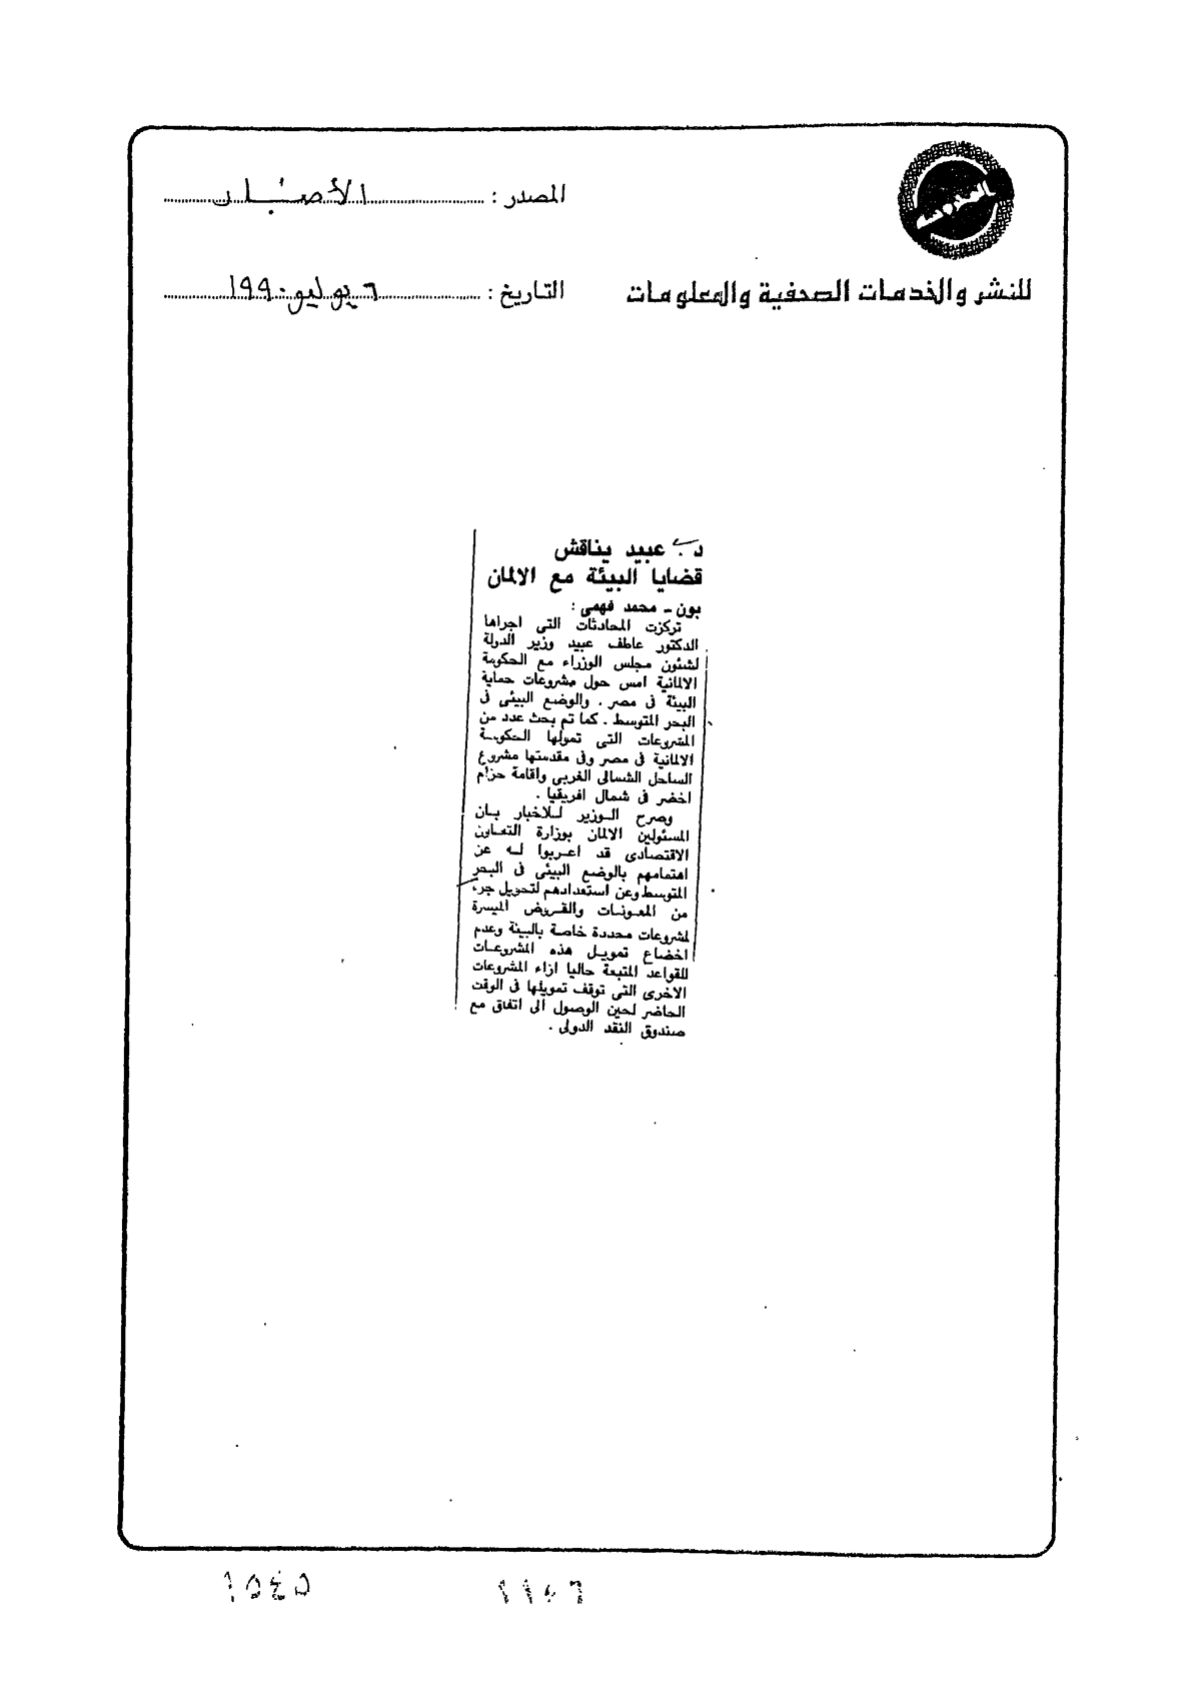 المصدر : الأخبار
للنشر والخدمات الصحفية والمعلومات
التاريخ : ٦ يوليو ١٩٩٠
د. عبيد يناقش
قضايا البيئة مع الالمان
بون ـ محمد فهمى :
تركزت المحادثات التى اجراها
الدكتور عاطف عبيد وزير الدولة
لشئون مجلس الوزراء مع الحكومة
الالمانية امس حول مشروعات حماية
البيئة فى مصر . والوضع البيئى فى
البحر المتوسط . كما تم بحث عدد من
المشروعات التى تمولها الحكومة
الالمانية فى مصر وفى مقدمتها مشروع
الساحل الشمالى الغربى واقامة حزام
اخضر فى شمال افريقيا .
وصرح الوزير للاخبار بان
المسئولين الالمان بوزارة التعاون
الاقتصادى قد اعربوا له عن
اهتمامهم بالوضع البيئى فى البحر
المتوسط وعن استعدادهم لتحويل جزء
من المعونات والقروض الميسرة
لمشروعات محددة خاصة بالبيئة وعدم
اخضاع تمويل هذه المشروعات
للقواعد المتبعة حاليا ازاء المشروعات
الاخرى التى توقف تمويلها فى الوقت
الحاضر لحين الوصول الى اتفاق مع
صندوق النقد الدولى .
١٥٤٥